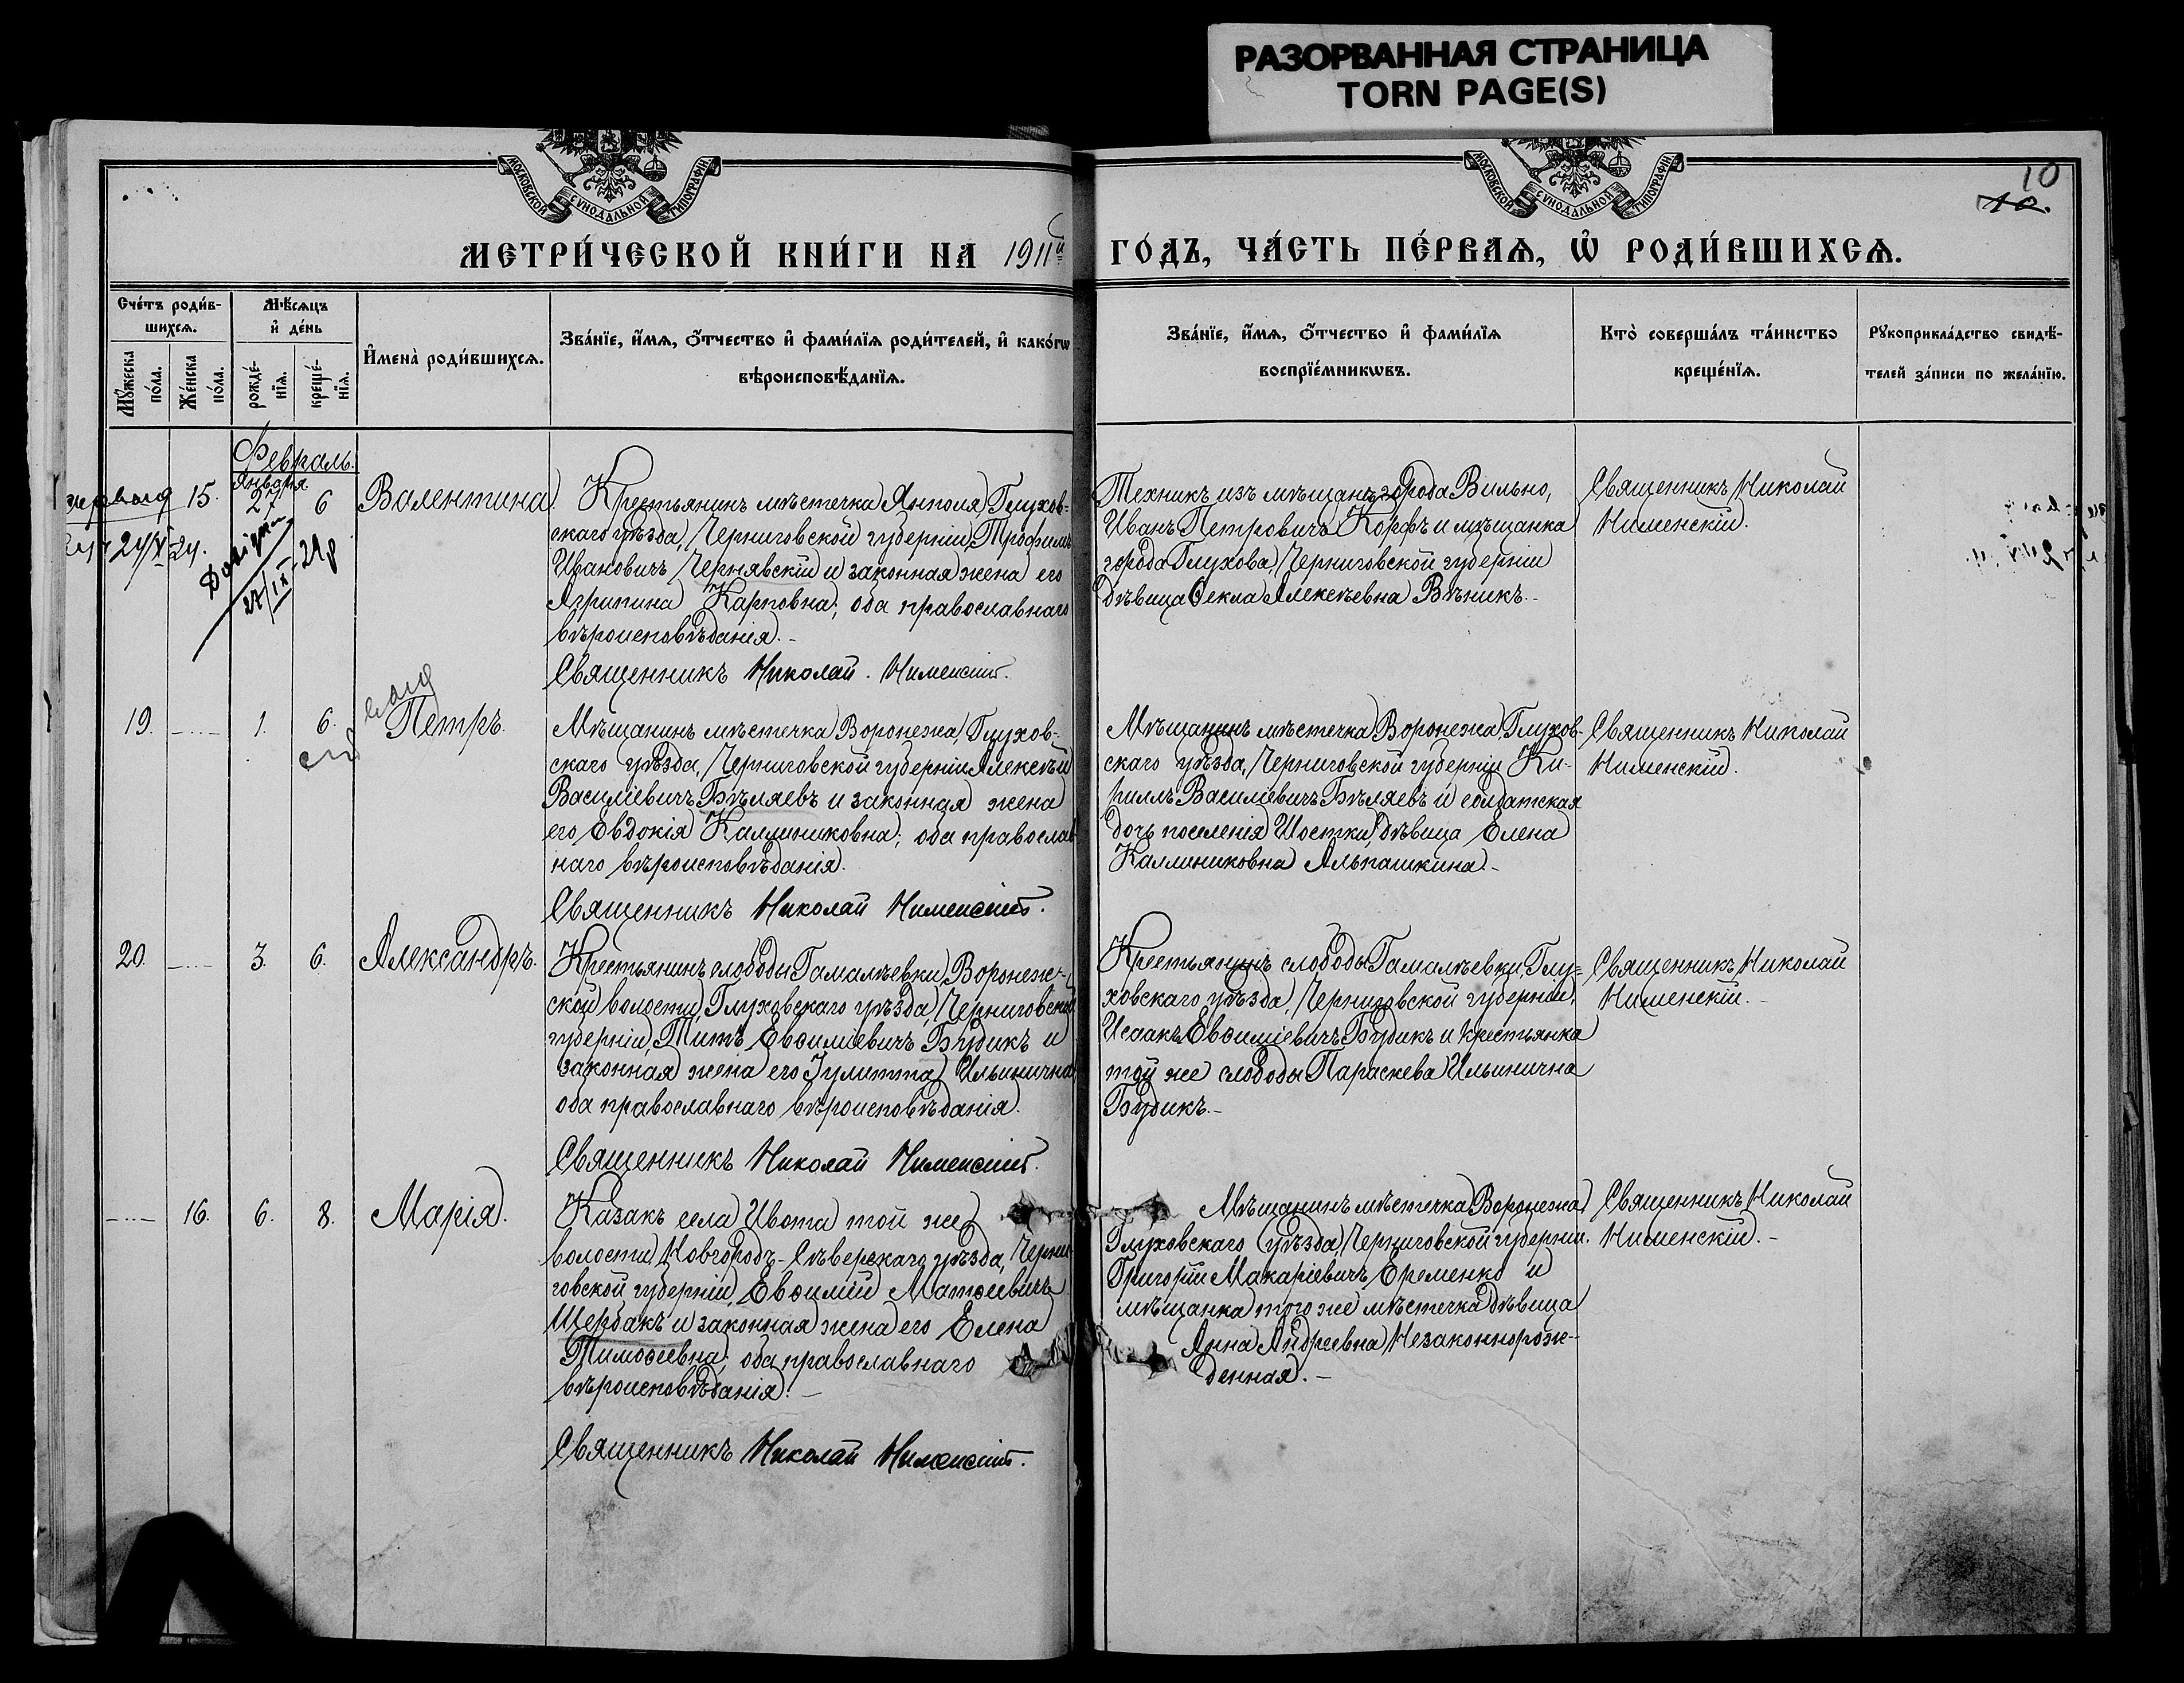 РАЗОРВАННАЯ СТРАНИЦА
TORN PAGE(S)
МОСКОВСКОЙ СѴНОДАЛЬНОЙ ТИПОГРАФІИ
МОСКОВСКОЙ СѴНОДАЛЬНОЙ ТИПОГРАФІИ
10
10.
МЕТРИ́ЧЕСКОЙ КНИ́ГИ НА 1911й ГО́ДЪ, ЧА́СТЬ ПЕ́РВАѦ, Ѡ РОДИ́ВШИХСѦ.
Сче́тъ роди́в-
шихсѧ.
Мꙋ́жеска по́ла.
Же́нска по́ла.
Мѣ́сѧцъ
и҆ де́нь
рожде́-
нїѧ.
креще́-
нїѧ.
И҆мена̀ роди́вшихсѧ.
Зва́нїе, и҆́мѧ, ѻ҆́тчество и҆ фами́лїѧ роди́телей, и҆ како́гѡ
вѣроисповѣ́данїѧ.
Зва́нїе, и҆́мѧ, ѻ҆́тчество и҆ фами́лїѧ
воспрїе́мникѡвъ.
Кто̀ соверша́лъ та́инство
креще́нїѧ.
Рꙋкоприкла́дство свидѣ́-
телей за́писи по жела́нїю.
Февраль.
Января
15.
27
6
Валентина.
24/V-24.
27/IX-29р
Крестьянинъ мѣстечка Янполя, Глухов-
скаго уѣзда, Черниговской губерніи, Трофимъ
Ивановичъ Чернявскій и законная жена его
Агрипина Карповна; оба православнаго
вѣроисповѣданія.-
Священникъ Николай Нименскій.
Техникъ изъ мѣщанъ города Вильно,
Иванъ Петровичъ Корфъ и мѣщанка
города Глухова, Черниговской губерніи
дѣвица Ѳекла Алексѣевна Вѣникъ.-
Священникъ Николай
Нименскій.
19.
1.
6.
Петръ.
Мѣщанинъ мѣстечка Воронежа, Глухов-
скаго уѣзда, Черниговской губерніи Алексѣй
Василіевичъ Бѣляевъ и законная жена
его Евдокія Каллиниковна; оба православ
наго вѣроисповѣданія.
Священникъ Николай Нименскій.
Мѣщанинъ мѣстечка Воронежа, Глухов-
скаго уѣзда, Черниговской губерніи Ки-
риллъ Василіевичъ Бѣляевъ и солдатская
дочь поселенія Шостки, дѣвица Елена
Каллиниковна Альпашкина.-
Священникъ Николай
Нименскій.
20.
3.
6.
Александръ.
Крестьянинъ слободы Гамалѣевки, Воронеж-
ской волости, Глуховскаго уѣзда, Черниговской
губерніи, Титъ Евѳиміевичъ Будикъ и
законная жена его Іулитта Ильинична
оба православнаго вѣроисповѣданія.
Священникъ Николай Нименскій.
Крестьянинъ слободы Гамалѣевки, Глу-
ховскаго уѣзда, Черниговской губерніи,
Исаакъ Евѳиміевичъ Будикъ и крестьянка
той же слободы Параскева Ильинична
Будикъ.-
Священникъ Николай
Нименскій.-
16.
6.
8.
Марія.
Казакъ села Ивота той же
волости, Новгородъ-Сѣверскаго уѣзда, Черни
говской губерніи, Евѳимій Матѳеевичъ
Щербакъ и законная жена его Елена
Тимоѳеевна; оба православнаго
вѣроисповѣданія.-
Священникъ Николай Нименскій.
Мѣщанинъ мѣстечка Воронежа,
Глуховскаго уѣзда, Черниговской губерніи.
Григорій Макаріевичъ Еременко и
мѣщанка того же мѣстечка дѣвица
Анна Андреевна Незаконнорож-
денная.-
Священникъ Николай
Нименскій.-